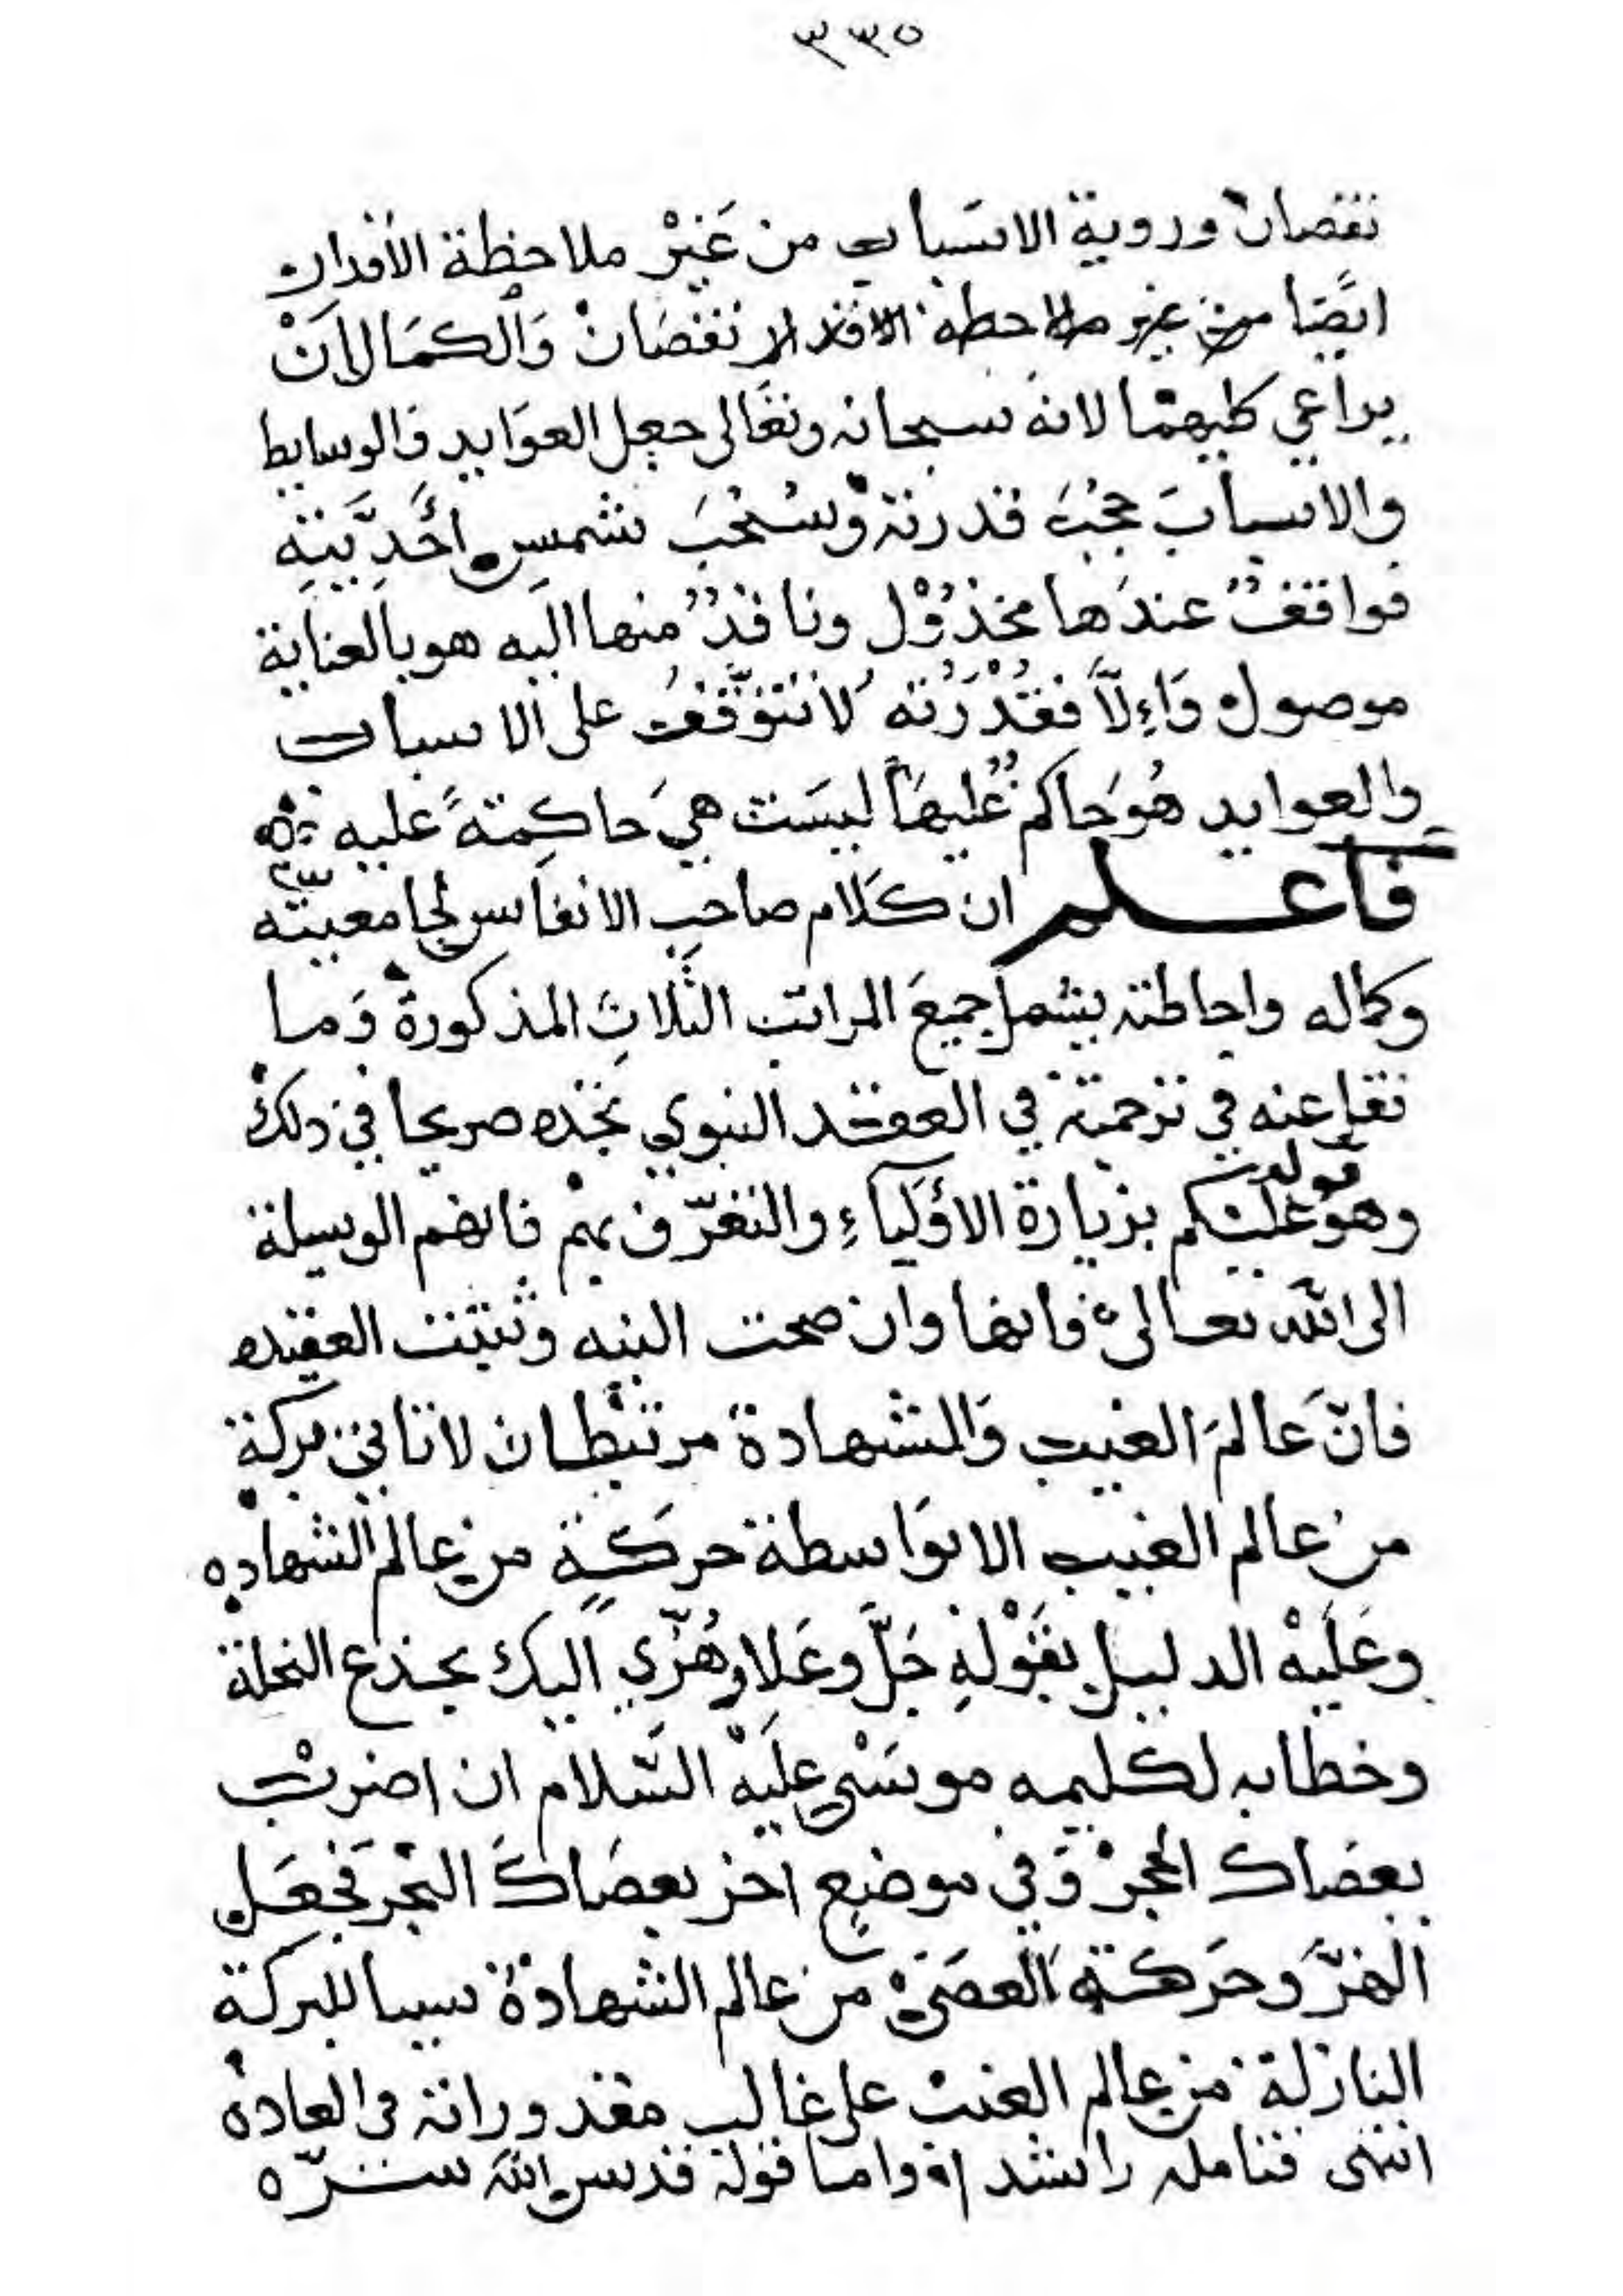 ٣٣٥
نقصان وروية الاسباب من غير ملاحظة الاقدار
ايضا من غير ملاحظه الاقدار نقصان والكمال ان
يراعي كليهما لانه سبحانه وتعالى جعل العوايد والوسايط
والاسباب حجب قدرته وسحب شمس احديته
فواقف عندها مخذول ونافذ منها اليه هو بالعناية
موصول والا فقدرته لا تتوقف على الاسباب
والعوايد هو حاكم عليها ليست هي حاكمة عليه
فاعلم ان كلام صاحب الانفاس لجامعيته
وكماله واحاطته يشمل جميع المراتب الثلاث المذكورة وما
نقل عنه في ترجمته في العقد النبوي تجده صريحا في ذلك
وهو قوله عليكم بزيارة الأولياء والتعرف بهم فانهم الوسيلة
الى الله تعالى فانها وان صحت النيه وثبتت العقيده
فان عالم الغيب والشهادة مرتبطان لا تاتي بركة
من عالم الغيب الا بواسطة حركة من عالم الشهاده
وعليه الدليل بقوله جل وعلا وهزي اليك بجذع النخلة
وخطابه لكليمه موسى عليه السلام ان اضرب
بعصاك الحجر وفي موضع اخر بعصاك البحر فجعل
الهز وحركة العصى من عالم الشهادة سببا للبركة
النازلة من عالم الغيب على غالب مقدوراته في العاده
انتهى فتامله راشدا واما قوله قدس الله سره